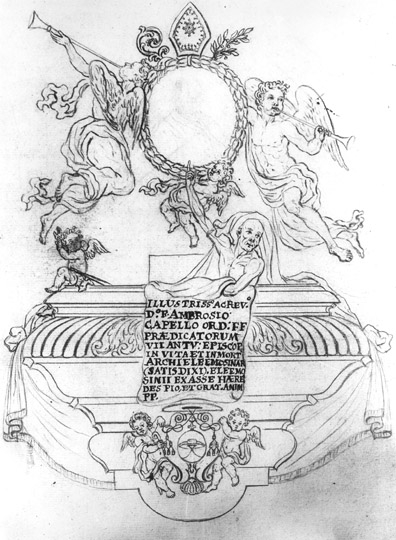 ILLUSTRISS. AC REV.º
D.º F. AMBROSIO
CAPELLO ORD. FF
PRÆDICATORUM
VII ANTV: EPISCOP.
IN VITA ET IN MORT
ARCHIELEEMOSINAR
(SATIS DIXI) ELEEMO
SINII EX ASSE HÆRE
DES PIO, ET GRAT. ANIM
PP.